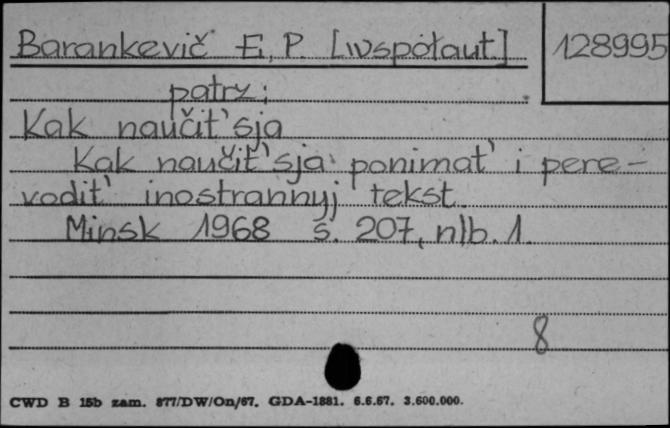 Barankevič E. P. [współaut] 128995
patrz:
Kak naučit'sja
Kak naučit'sja ponimat' i pere-
vodit' inostrannyj tekst.
Minsk 1968 s. 207, nlb. 1.
8
CWD B 15b zam. 877/DW/On/67. GDA-1881. 6.6.67. 3.600.000.